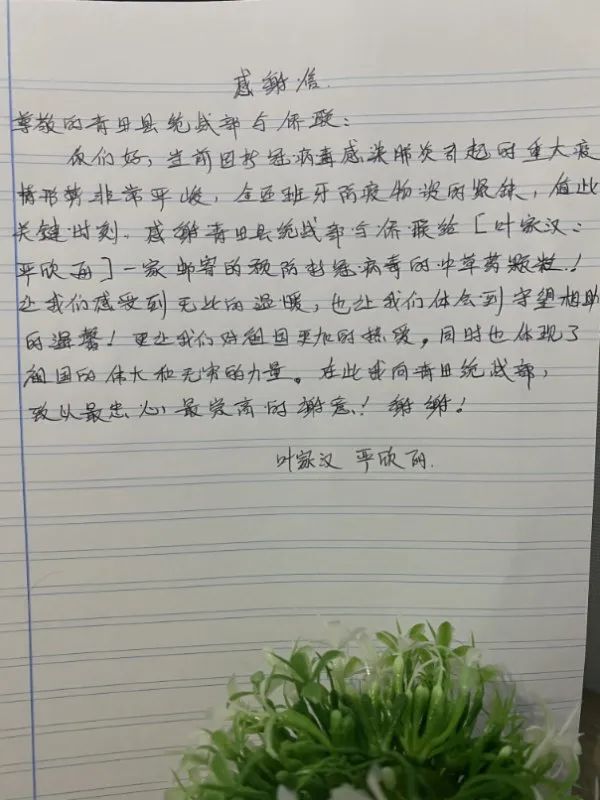 感谢信.
尊敬的青田县统战部与侨联:
你们好,当前因新冠病毒感染肺炎引起的重大疫
情形势非常严峻,全西班牙防疫物资的紧缺,值此
关键时刻.感谢青田县统战部与侨联给[叶家汉:
严欣丽]一家邮寄的预防新冠病毒的中草药颗粒!
让我们感受到无比的温暖,也让我们体会到守望相助
的温馨!更让我们对祖国更加的热爱。同时也体现了
祖国的伟大和无穷的力量。在此我向青田统战部,
致以最忠心,最崇高的谢意!谢谢!
叶家汉 严欣丽.